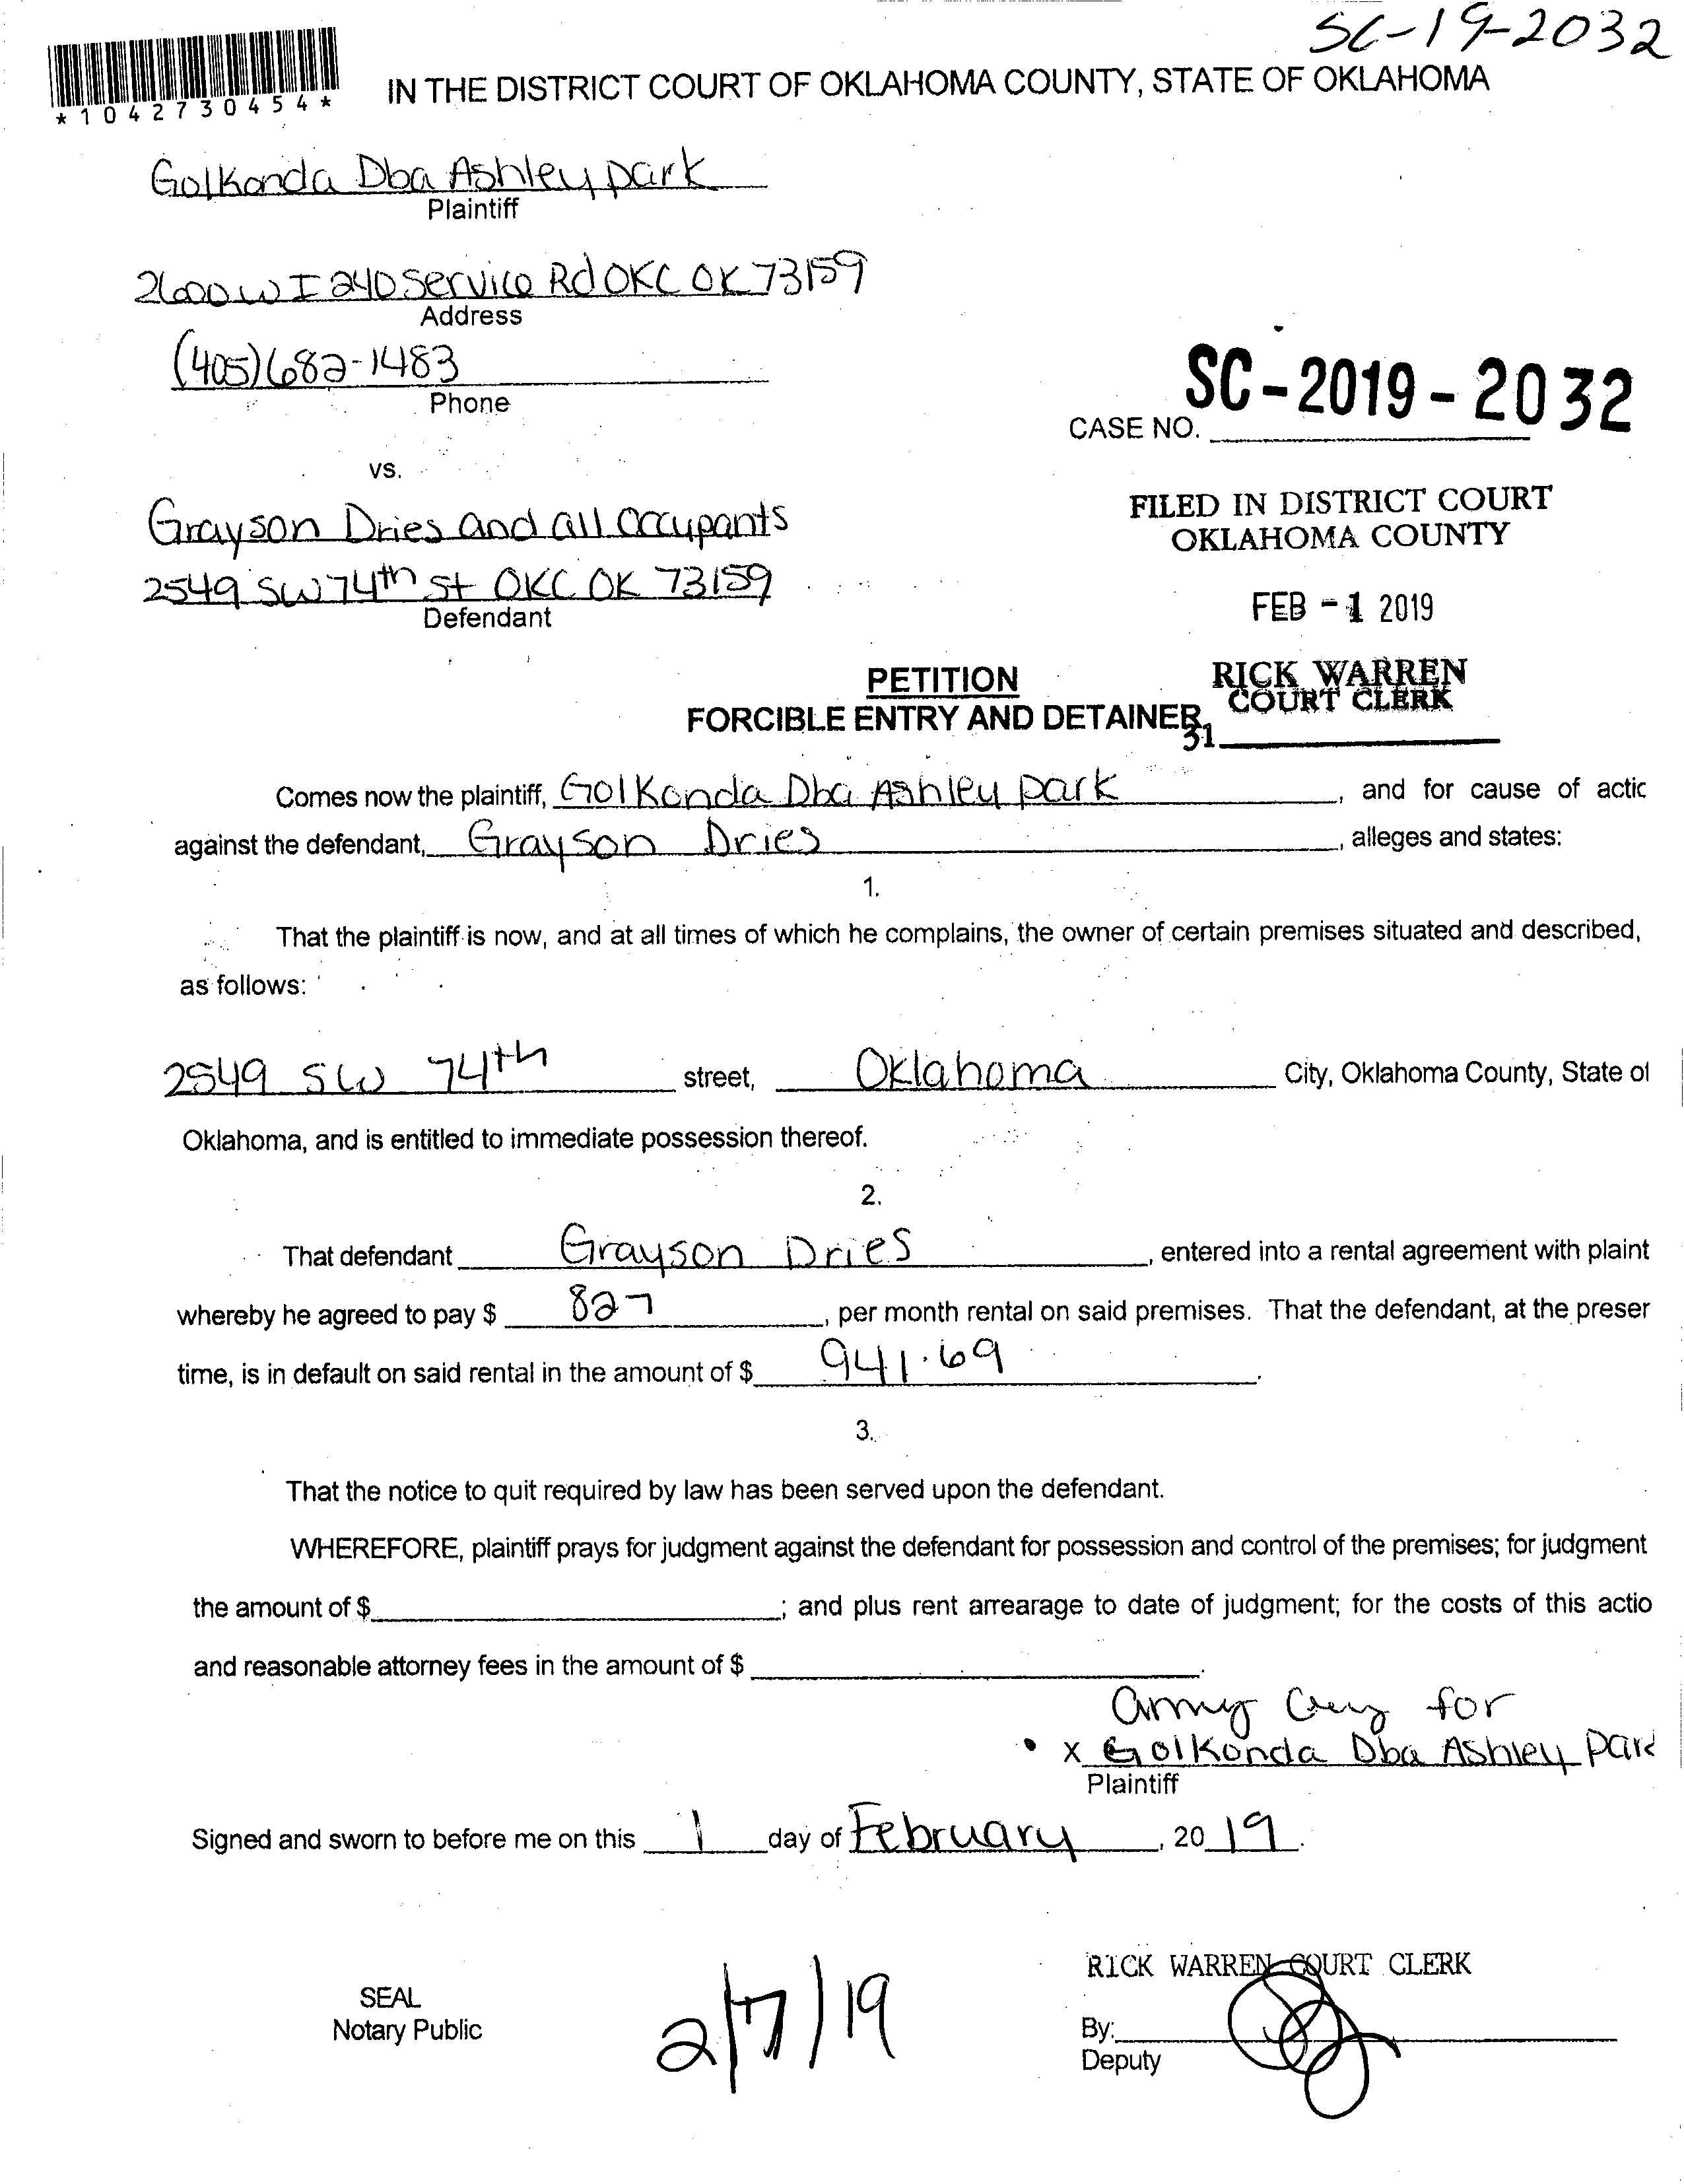 SC-19-2032
*1042730454*
IN THE DISTRICT COURT OF OKLAHOMA COUNTY, STATE OF OKLAHOMA
Golkonda Dba Ashley park
Plaintiff
2600 W I 240 Service Rd OKC OK 73159
Address
(405)682-1483
Phone
SC-2019-2032
CASE NO.
vs.
Grayson Dries and all occupants
2549 SW 74th St OKC OK 73159
Defendant
FILED IN DISTRICT COURT
OKLAHOMA COUNTY
FEB -1 2019
RICK WARREN
COURT CLERK
31
PETITION
FORCIBLE ENTRY AND DETAINER
Comes now the plaintiff, Golkonda Dba Ashley park, and for cause of actic
against the defendant, Grayson Dries, alleges and states:
1.
That the plaintiff is now, and at all times of which he complains, the owner of certain premises situated and described,
as follows:
2549 SW 74th street, Oklahoma City, Oklahoma County, State of
Oklahoma, and is entitled to immediate possession thereof.
2.
That defendant Grayson Dries, entered into a rental agreement with plaint
whereby he agreed to pay $ 827, per month rental on said premises. That the defendant, at the preser
time, is in default on said rental in the amount of $ 941.69.
3.
That the notice to quit required by law has been served upon the defendant.
WHEREFORE, plaintiff prays for judgment against the defendant for possession and control of the premises; for judgment
the amount of $ ; and plus rent arrearage to date of judgment; for the costs of this actio
and reasonable attorney fees in the amount of $ .
for
x Golkonda Dba Ashley Park
Plaintiff
Signed and sworn to before me on this 1 day of February, 20 19.
RICK WARREN COURT CLERK
SEAL
Notary Public
2/7/19
By:
Deputy